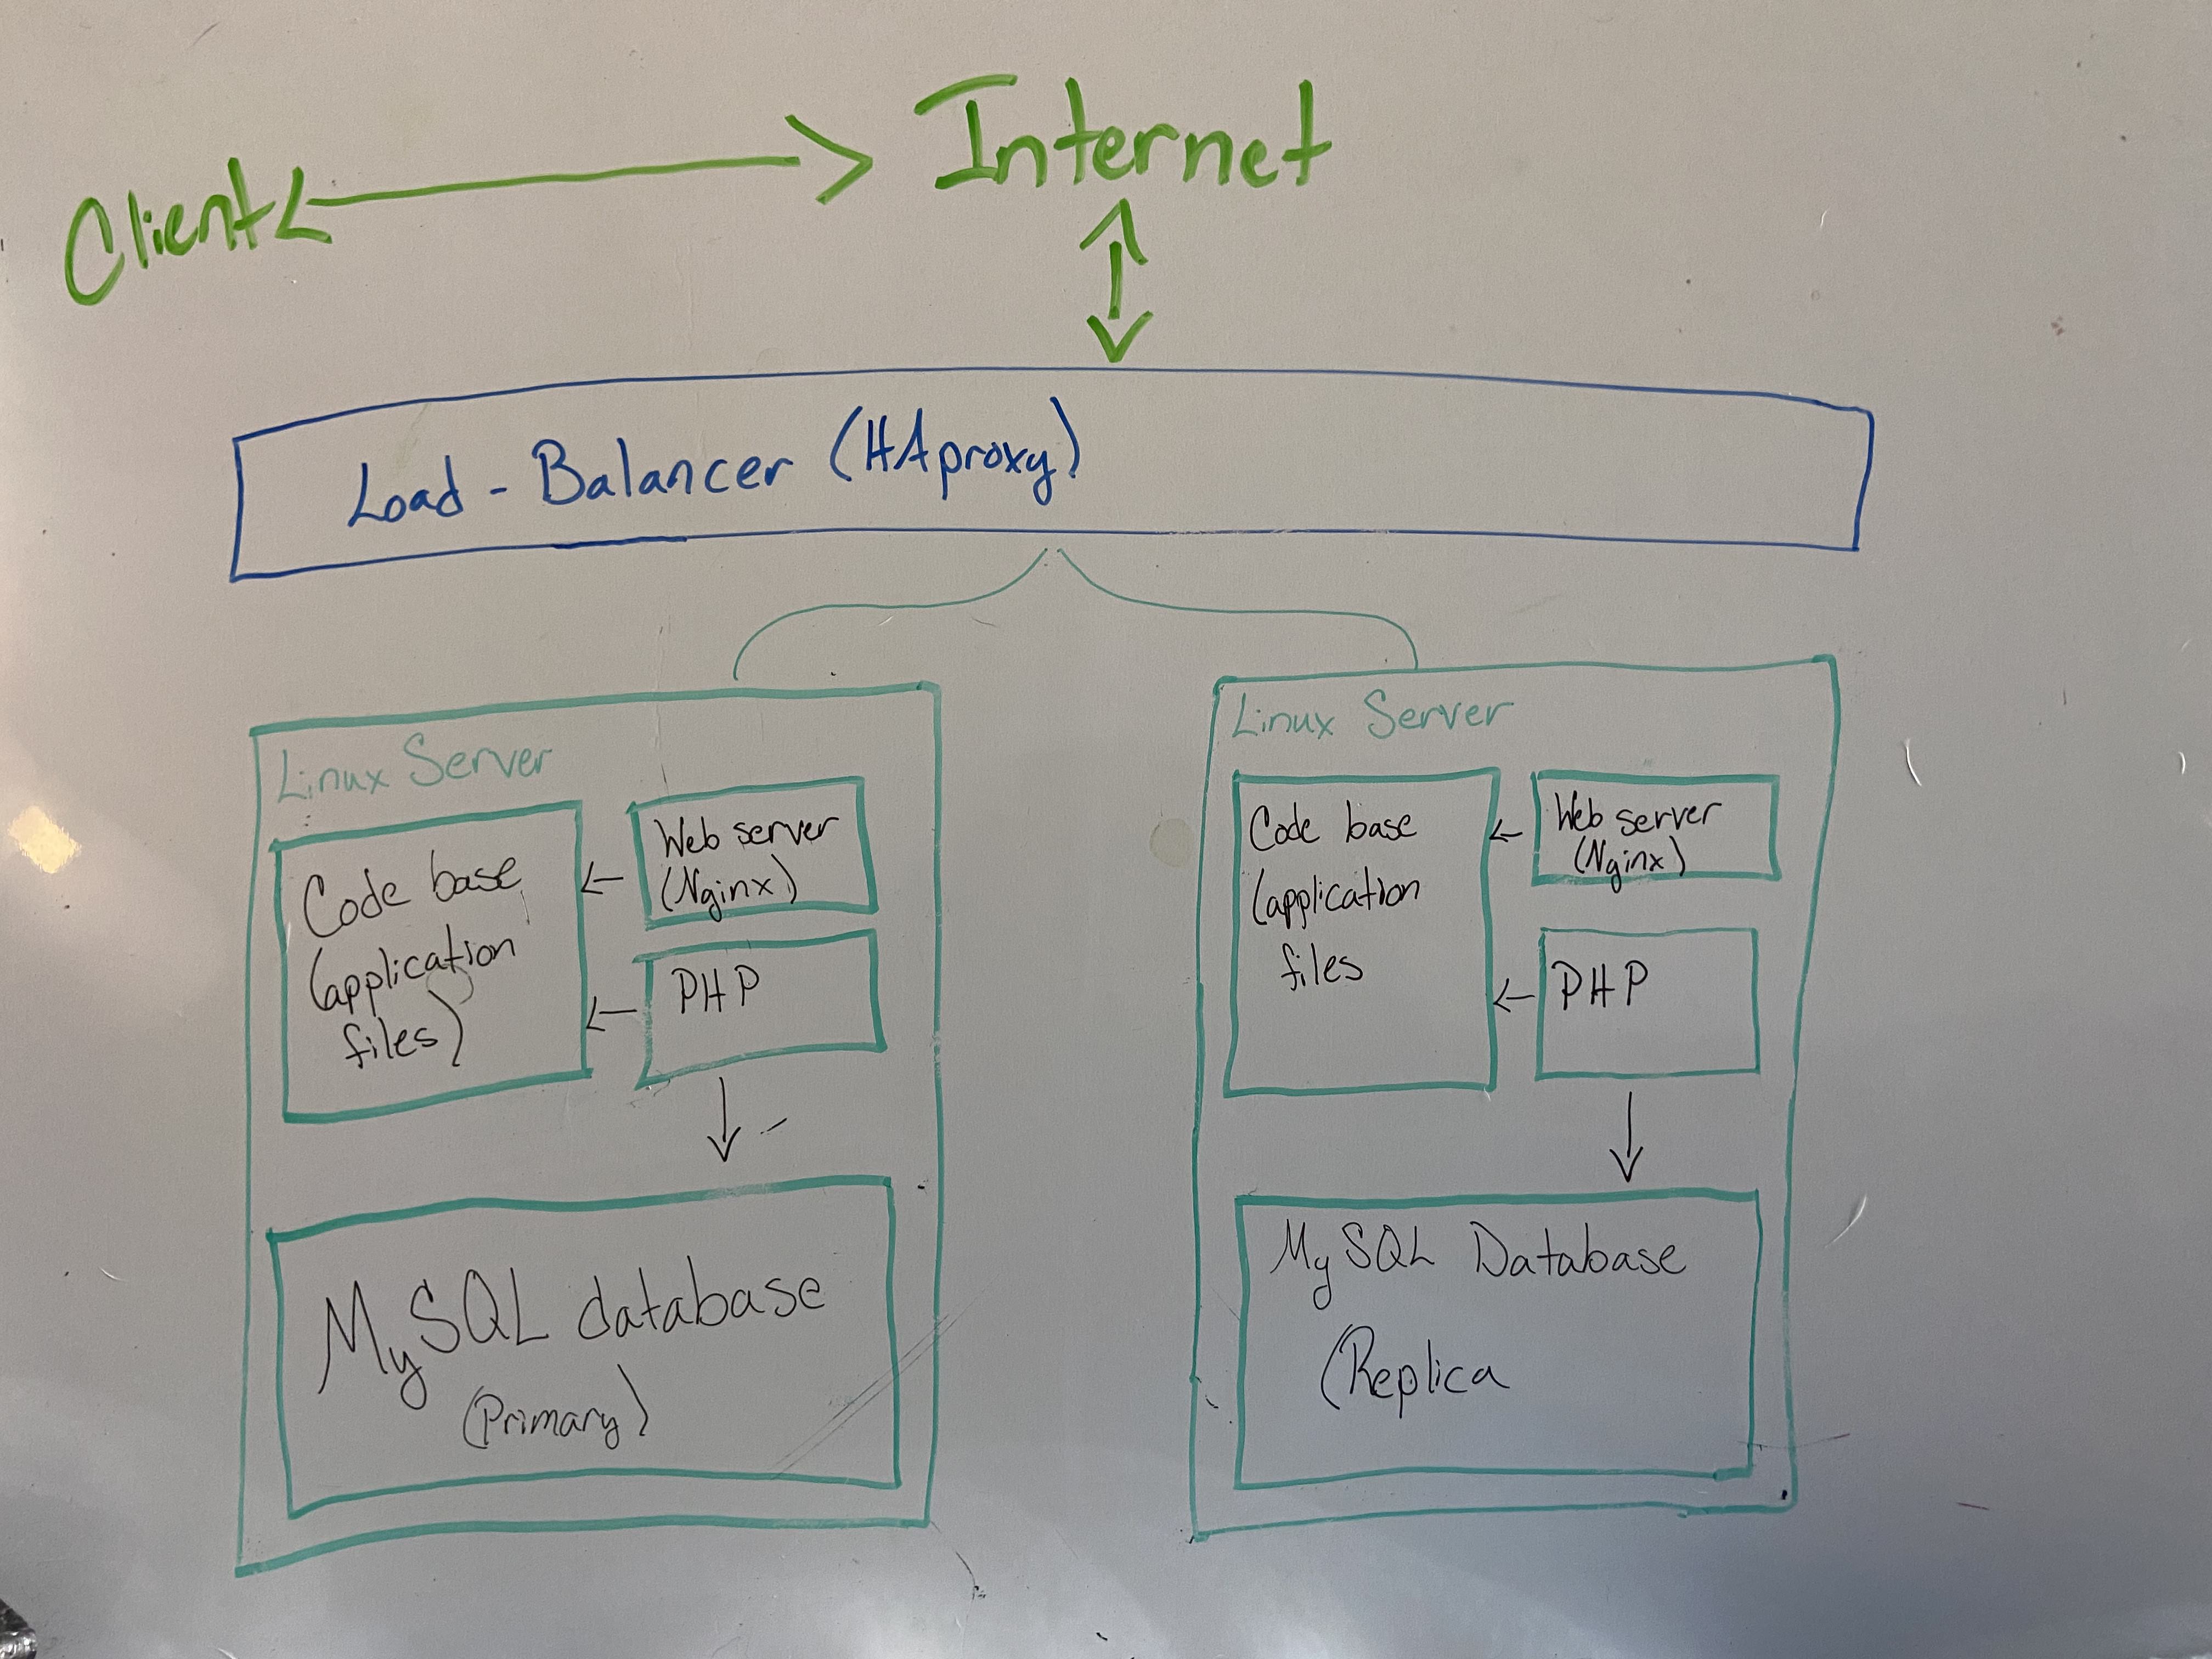 Internet
Client
Load - Balancer (HAproxy)
Linux Server
Code base
(application
files)
Web server
(Nginx)
PHP
MySQL database
(Primary)
Linux Server
Code base
(application
files
Web server
(Nginx)
PHP
MySQL Database
(Replica